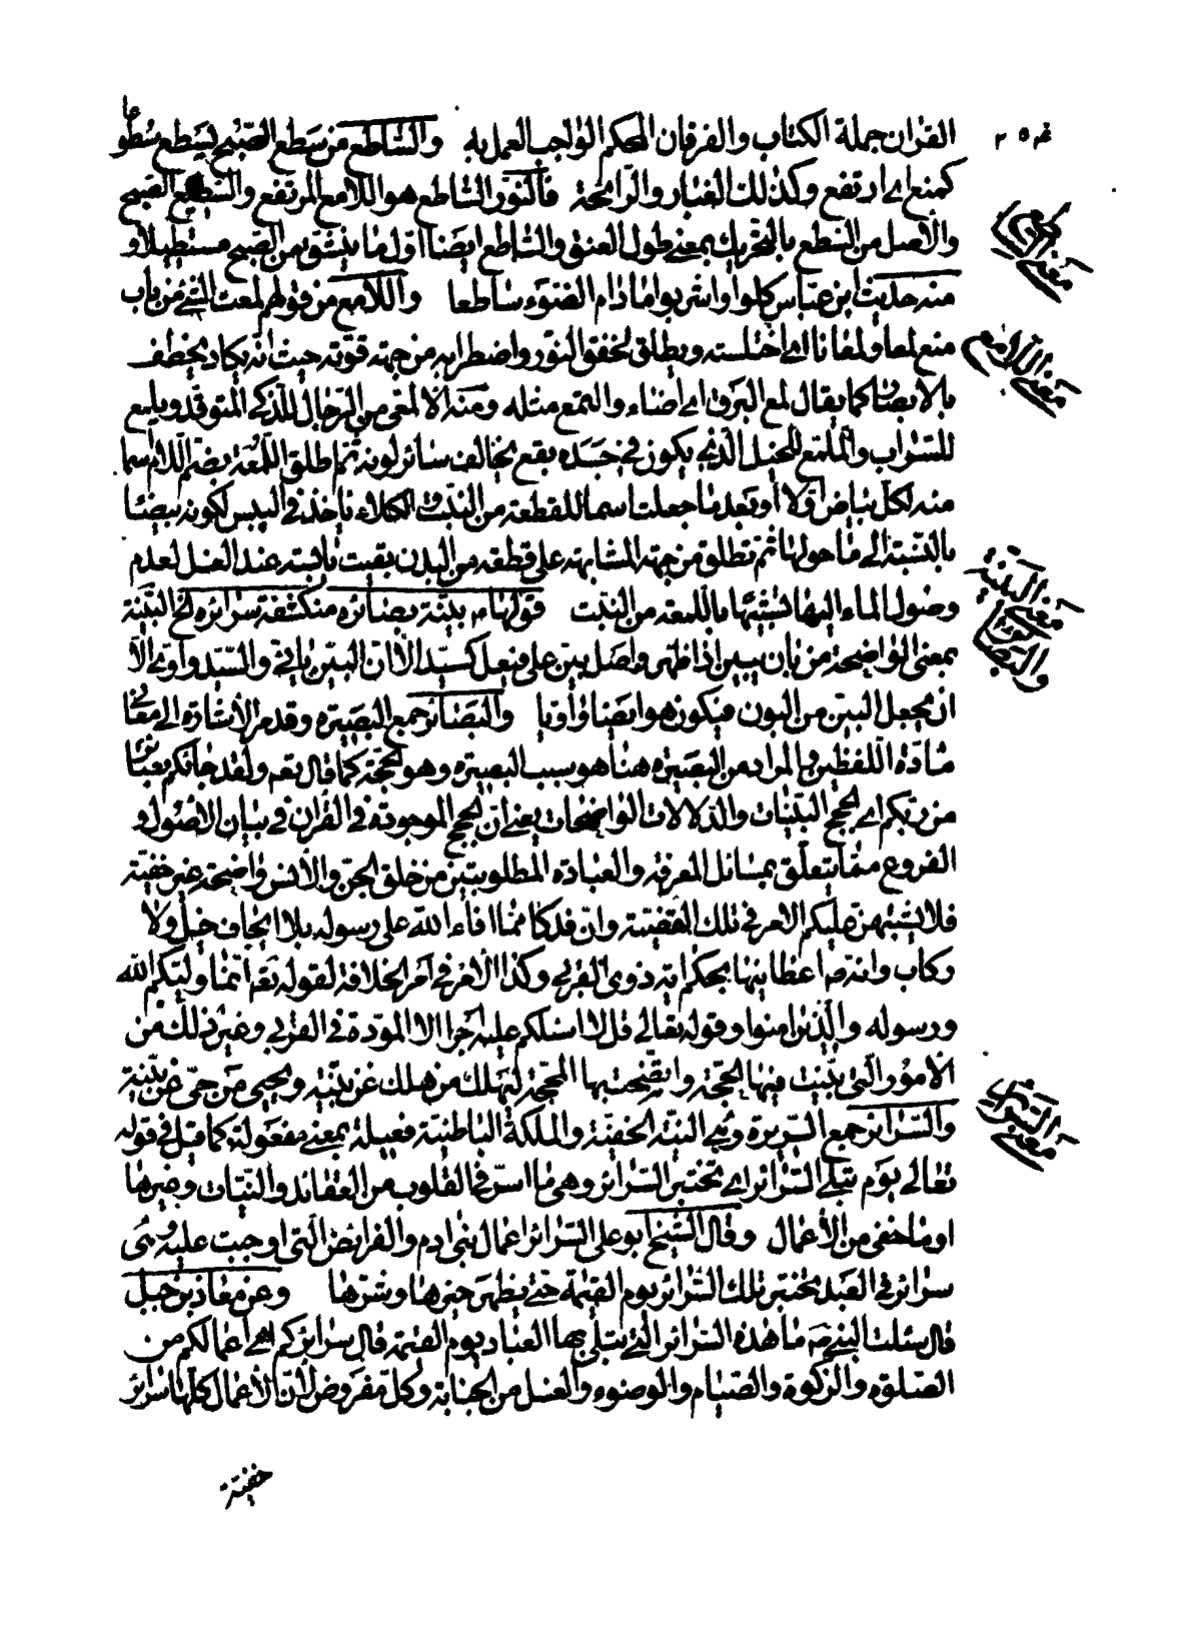 القران جملة الكتاب والفرقان المحكم الواجب العمل به والساطع من سطع الصبح يسطع سطوعا
كمنع اى ارتفع وكذلك الغبار والرائحة فالنور الساطع هو اللامع المرتفع والسطيع الصبح
والاصل من السطع بالتحريك بمعنى طول العنق والساطع ايضا اول ما ينشق من الصبح مستطيلا و
منه حديث ابن عباس كلوا واشربوا ما دام الضوء ساطعا واللامع من قولهم لمعت الشئ من باب
منع لمعا ولمعانا اى اختلسته ويطلق لخفق النور واضطرابه من جهة قوته حيث انه يكاد يخطف
بالابصار كما يقال لمع البرق اى اضاء والتمع مثله ومنه الالمعى من الرجال للذكى المتوقد ويلمع
للسراب والملمع للخيل الذى يكون فى جسده بقع يخالف سائر لونه ثم اطلق اللمعة بضم اللام اسما
منه لكل بياض اولا او بعد ما جعلت اسما للقطعة من النبت والكلاء تاخذ فى اليبس لكونه بيضا
بالنسبة الى ما حولها ثم تطلق من جهة المشابهة على قطعة من البدن بقيت يابسة عند الغسل لعدم
وصول الماء اليها تشبيها باللمعة من النبت قولها ع بينة بصائره منكشفة سرائره الخ البينة
بمعنى الواضحة من بان يبين اذا ظهر واصل بين على فيعل كسيد الا ان البين يائى والسيد واوى الا
ان يجعل البين من البون فيكون هو ايضا واويا والبصائر جمع البصيرة وقد مر الاشارة الى معانى
مادة اللفظين والمراد من البصيرة هنا هو سبب البصيرة وهو الحجة كما قال تعه ولقد جائكم بصائر
من ربكم اى الحجج البينات والدلالات الواضحات يعنى ان الحجج الموجودة فى القران فى بيان الاصول و
الفروع مما يتعلق بمسائل المعرفة والعبادة المطلوبتين من خلق الجن والانس واضحة غير خفية
فلا يشتبهن عليكم الامر فى تلك القضية وان فدكا مما افاء الله على رسوله بلا ايجاف خيل ولا
ركاب وانه ص اعطانيها بحكم اية ذوى القربى وكذا الامر فى امر الخلافة لقوله تعه انما وليكم الله
ورسوله والذين امنوا وقوله تعالى قل لا اسئلكم عليه اجرا الا المودة فى القربى وغير ذلك من
الامور التى بينت فيها الحجة واتضحت بها المحجة ليهلك من هلك عن بينة ويحيى من حى عن بينة
والسرائر جمع السريرة وهى النية الخفية والملكة الباطنية فعيلة بمعنى مفعولة كما قيل فى قوله
تعالى يوم تبلى السرائر اى تختبر السرائر وهى ما اسر فى القلوب من العقائد والنيات وغيرها
او ما خفى من الاعمال وقال الشيخ ابو على السرائر اعمال بنى ادم والفرائض التى اوجبت عليه وهى
سرائر فى العبد تختبر تلك السرائر يوم القيمة حتى يظهر خيرها وشرها وعن معاذ بن جبل
قال سئلت النبى ص ما هذه السرائر التى تبلى بها العباد يوم القيمة قال سرائركم هى اعمالكم من
الصلوة والزكوة والصيام والوضوء والغسل من الجنابة وكل مفروض لان الاعمال كلها سرائر
خفية
معنى
معنى اللامع
معنى البينة
والبصائر
معنى السرائر